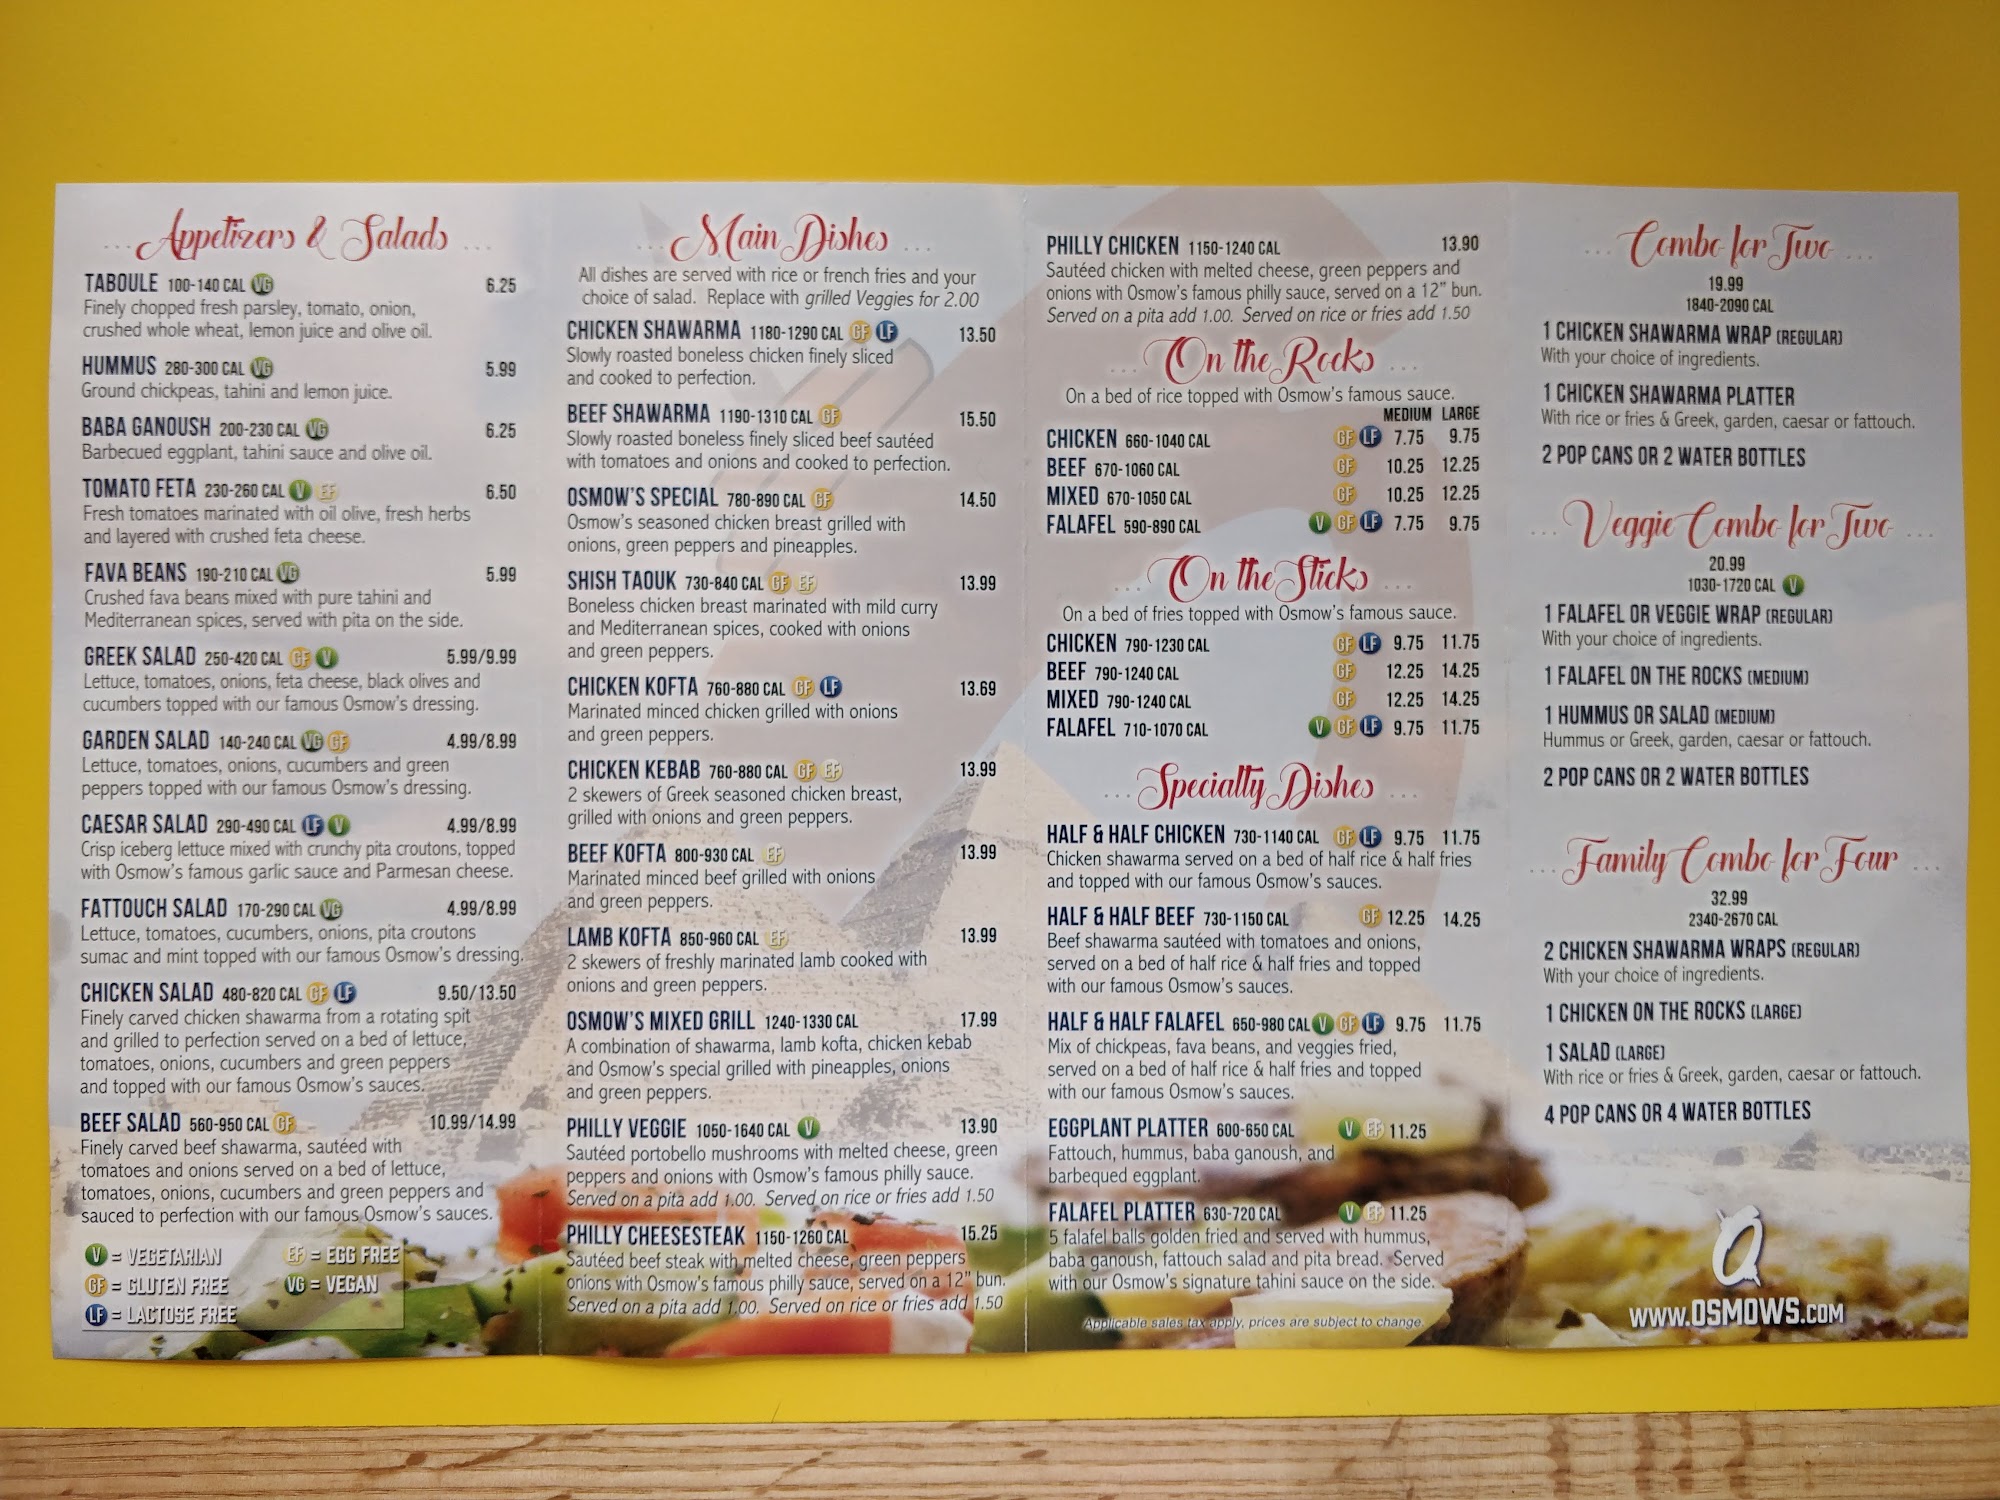 Appetizers & Salads
TABOULE 100-140 CAL VG 6.25
Finely chopped fresh parsley, tomato, onion,
crushed whole wheat, lemon juice and olive oil.
HUMMUS 280-300 CAL VG 5.99
Ground chickpeas, tahini and lemon juice.
BABA GANOUSH 200-230 CAL VG 6.25
Barbecued eggplant, tahini sauce and olive oil.
TOMATO FETA 230-260 CAL V EF 6.50
Fresh tomatoes marinated with oil olive, fresh herbs
and layered with crushed feta cheese.
FAVA BEANS 190-210 CAL VG 5.99
Crushed fava beans mixed with pure tahini and
Mediterranean spices, served with pita on the side.
GREEK SALAD 250-420 CAL GF V 5.99/9.99
Lettuce, tomatoes, onions, feta cheese, black olives and
cucumbers topped with our famous Osmow's dressing.
GARDEN SALAD 140-240 CAL VG GF 4.99/8.99
Lettuce, tomatoes, onions, cucumbers and green
peppers topped with our famous Osmow's dressing.
CAESAR SALAD 290-490 CAL LF V 4.99/8.99
Crisp iceberg lettuce mixed with crunchy pita croutons, topped
with Osmow's famous garlic sauce and Parmesan cheese.
FATTOUCH SALAD 170-290 CAL VG 4.99/8.99
Lettuce, tomatoes, cucumbers, onions, pita croutons
sumac and mint topped with our famous Osmow's dressing.
CHICKEN SALAD 480-820 CAL GF LF 9.50/13.50
Finely carved chicken shawarma from a rotating spit
and grilled to perfection served on a bed of lettuce,
tomatoes, onions, cucumbers and green peppers
and topped with our famous Osmow's sauces.
BEEF SALAD 560-950 CAL GF 10.99/14.99
Finely carved beef shawarma, sautéed with
tomatoes and onions served on a bed of lettuce,
tomatoes, onions, cucumbers and green peppers and
sauced to perfection with our famous Osmow's sauces.
V = VEGETARIAN EF = EGG FREE
GF = GLUTEN FREE VG = VEGAN
LF = LACTOSE FREE
Main Dishes
All dishes are served with rice or french fries and your
choice of salad. Replace with grilled Veggies for 2.00
CHICKEN SHAWARMA 1180-1290 CAL GF LF 13.50
Slowly roasted boneless chicken finely sliced
and cooked to perfection.
BEEF SHAWARMA 1190-1310 CAL GF 15.50
Slowly roasted boneless finely sliced beef sautéed
with tomatoes and onions and cooked to perfection.
OSMOW'S SPECIAL 780-890 CAL GF 14.50
Osmow's seasoned chicken breast grilled with
onions, green peppers and pineapples.
SHISH TAOUK 730-840 CAL GF EF 13.99
Boneless chicken breast marinated with mild curry
and Mediterranean spices, cooked with onions
and green peppers.
CHICKEN KOFTA 760-880 CAL GF LF 13.69
Marinated minced chicken grilled with onions
and green peppers.
CHICKEN KEBAB 760-880 CAL GF EF 13.99
2 skewers of Greek seasoned chicken breast,
grilled with onions and green peppers.
BEEF KOFTA 800-930 CAL EF 13.99
Marinated minced beef grilled with onions
and green peppers.
LAMB KOFTA 850-960 CAL EF 13.99
2 skewers of freshly marinated lamb cooked with
onions and green peppers.
OSMOW'S MIXED GRILL 1240-1330 CAL 17.99
A combination of shawarma, lamb kofta, chicken kebab
and Osmow's special grilled with pineapples, onions
and green peppers.
PHILLY VEGGIE 1050-1640 CAL V 13.90
Sautéed portobello mushrooms with melted cheese, green
peppers and onions with Osmow's famous philly sauce.
Served on a pita add 1.00. Served on rice or fries add 1.50
PHILLY CHEESESTEAK 1150-1260 CAL 15.25
Sautéed beef steak with melted cheese, green peppers
onions with Osmow's famous philly sauce, served on a 12" bun.
Served on a pita add 1.00. Served on rice or fries add 1.50
PHILLY CHICKEN 1150-1240 CAL 13.90
Sautéed chicken with melted cheese, green peppers and
onions with Osmow's famous philly sauce, served on a 12" bun.
Served on a pita add 1.00. Served on rice or fries add 1.50
On the Rocks
On a bed of rice topped with Osmow's famous sauce.
MEDIUM LARGE
CHICKEN 660-1040 CAL GF LF 7.75 9.75
BEEF 670-1060 CAL GF 10.25 12.25
MIXED 670-1050 CAL GF 10.25 12.25
FALAFEL 590-890 CAL V GF LF 7.75 9.75
On the Sticks
On a bed of fries topped with Osmow's famous sauce.
CHICKEN 790-1230 CAL GF LF 9.75 11.75
BEEF 790-1240 CAL GF 12.25 14.25
MIXED 790-1240 CAL GF 12.25 14.25
FALAFEL 710-1070 CAL V GF LF 9.75 11.75
Specialty Dishes
HALF & HALF CHICKEN 730-1140 CAL GF LF 9.75 11.75
Chicken shawarma served on a bed of half rice & half fries
and topped with our famous Osmow's sauces.
HALF & HALF BEEF 730-1150 CAL GF 12.25 14.25
Beef shawarma sautéed with tomatoes and onions,
served on a bed of half rice & half fries and topped
with our famous Osmow's sauces.
HALF & HALF FALAFEL 650-980 CAL V GF LF 9.75 11.75
Mix of chickpeas, fava beans, and veggies fried,
served on a bed of half rice & half fries and topped
with our famous Osmow's sauces.
EGGPLANT PLATTER 600-650 CAL V EF 11.25
Fattouch, hummus, baba ganoush, and
barbequed eggplant.
FALAFEL PLATTER 630-720 CAL V EF 11.25
5 falafel balls golden fried and served with hummus,
baba ganoush, fattouch salad and pita bread. Served
with our Osmow's signature tahini sauce on the side.
Applicable sales tax apply, prices are subject to change.
Combo for Two
19.99
1840-2090 CAL
1 CHICKEN SHAWARMA WRAP (REGULAR)
With your choice of ingredients.
1 CHICKEN SHAWARMA PLATTER
With rice or fries & Greek, garden, caesar or fattouch.
2 POP CANS OR 2 WATER BOTTLES
Veggie Combo for Two
20.99
1030-1720 CAL V
1 FALAFEL OR VEGGIE WRAP (REGULAR)
With your choice of ingredients.
1 FALAFEL ON THE ROCKS (MEDIUM)
1 HUMMUS OR SALAD (MEDIUM)
Hummus or Greek, garden, caesar or fattouch.
2 POP CANS OR 2 WATER BOTTLES
Family Combo for Four
32.99
2340-2670 CAL
2 CHICKEN SHAWARMA WRAPS (REGULAR)
With your choice of ingredients.
1 CHICKEN ON THE ROCKS (LARGE)
1 SALAD (LARGE)
With rice or fries & Greek, garden, caesar or fattouch.
4 POP CANS OR 4 WATER BOTTLES
WWW.OSMOWS.COM